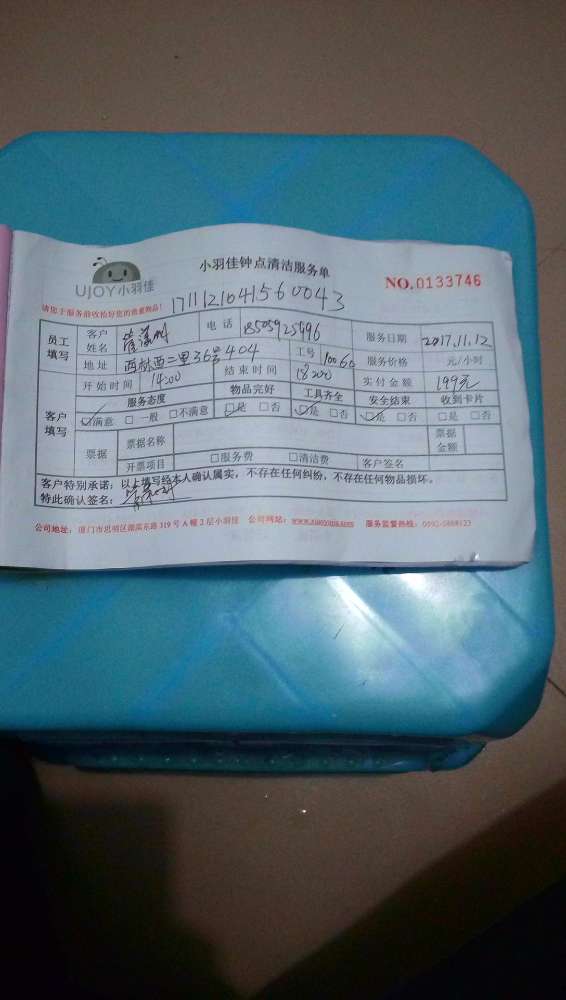 UJOY小羽佳
小羽佳钟点清洁服务单
NO.0133746
请您于服务前收拾好您的贵重物品!
171112104156 0043
员工填写
客户姓名
电话 18505925496
服务日期 2017.11.12
地址 西林西二里36号404
工号 10060
服务价格 元/小时
开始时间 14:00
结束时间 18:00
实付金额 199元
客户填写
服务态度 物品完好 工具齐全 安全结束 收到卡片
☑满意 □一般 □不满意 ☑是 □否 ☑是 □否 ☑是 □否 □是 □否
票据
票据名称 票据金额
开票项目 □服务费 □清洁费 客户签名
客户特别承诺:以上填写经本人确认属实,不存在任何纠纷,不存在任何物品损坏。
特此确认签名:
公司地址:厦门市思明区湖滨东路319号A幢2层小羽佳 公司网站: 服务监督热线: